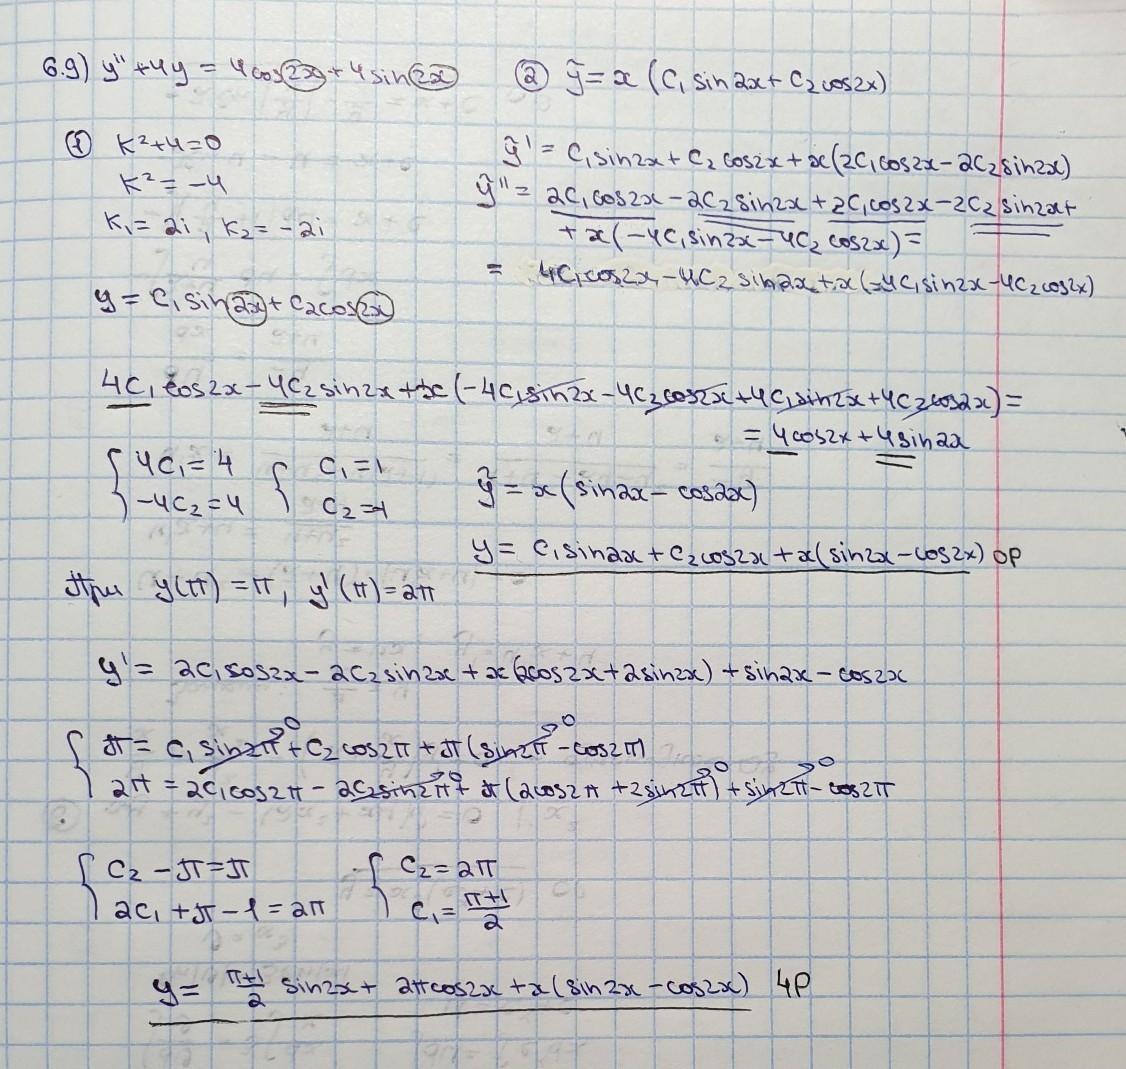 6.9) y'' + 4y = 4cos2x + 4sin2x
① k² + 4 = 0
k² = -4
k₁ = 2i, k₂ = -2i
y = C₁sin2x + C₂cos2x
② ỹ = x (C₁sin2x + C₂cos2x)
ỹ' = C₁sin2x + C₂cos2x + x(2C₁cos2x - 2C₂sin2x)
ỹ'' = 2C₁cos2x - 2C₂sin2x + 2C₁cos2x - 2C₂sin2x +
+ x(-4C₁sin2x - 4C₂cos2x) =
= 4C₁cos2x - 4C₂sin2x + x(-4C₁sin2x - 4C₂cos2x)
4C₁cos2x - 4C₂sin2x + x(-4C₁sin2x - 4C₂cos2x + 4C₁sin2x + 4C₂cos2x) =
= 4cos2x + 4sin2x
{ 4C₁ = 4 { C₁ = 1
-4C₂ = 4 C₂ = -1
ỹ = x(sin2x - cos2x)
y = C₁sin2x + C₂cos2x + x(sin2x - cos2x) ОР
При y(π) = π, y'(π) = 2π
y' = 2C₁cos2x - 2C₂sin2x + x(2cos2x + 2sin2x) + sin2x - cos2x
{ π = C₁sin2π→0 + C₂cos2π + π(sin2π→0 - cos2π)
2π = 2C₁cos2π - 2C₂sin2π→0 + π(2cos2π + 2sin2π→0) + sin2π→0 - cos2π
{ C₂ - π = π { C₂ = 2π
2C₁ + π - 1 = 2π C₁ = (π+1)/2
y = (π+1)/2 sin2x + 2πcos2x + x(sin2x - cos2x) ЧР